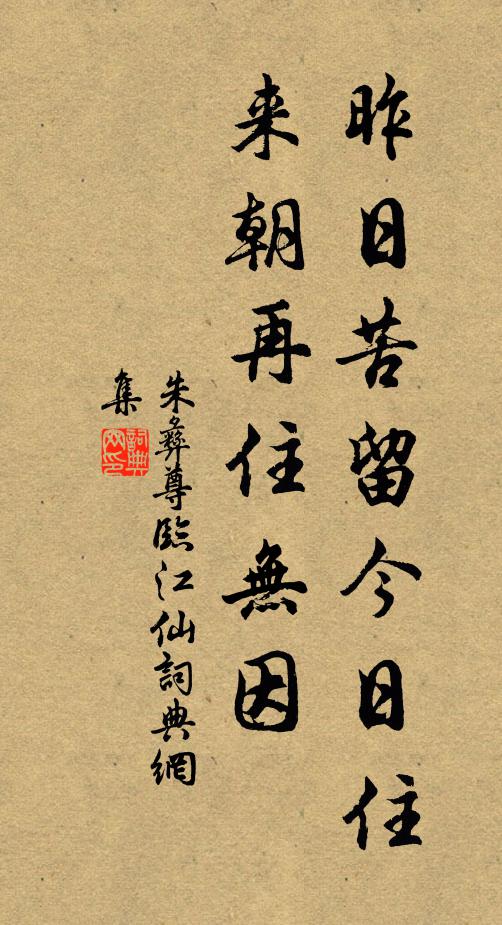 昨日苦留今日住
来朝再住無因
朱彝尊臨江仙詞典網
集
詞典网印